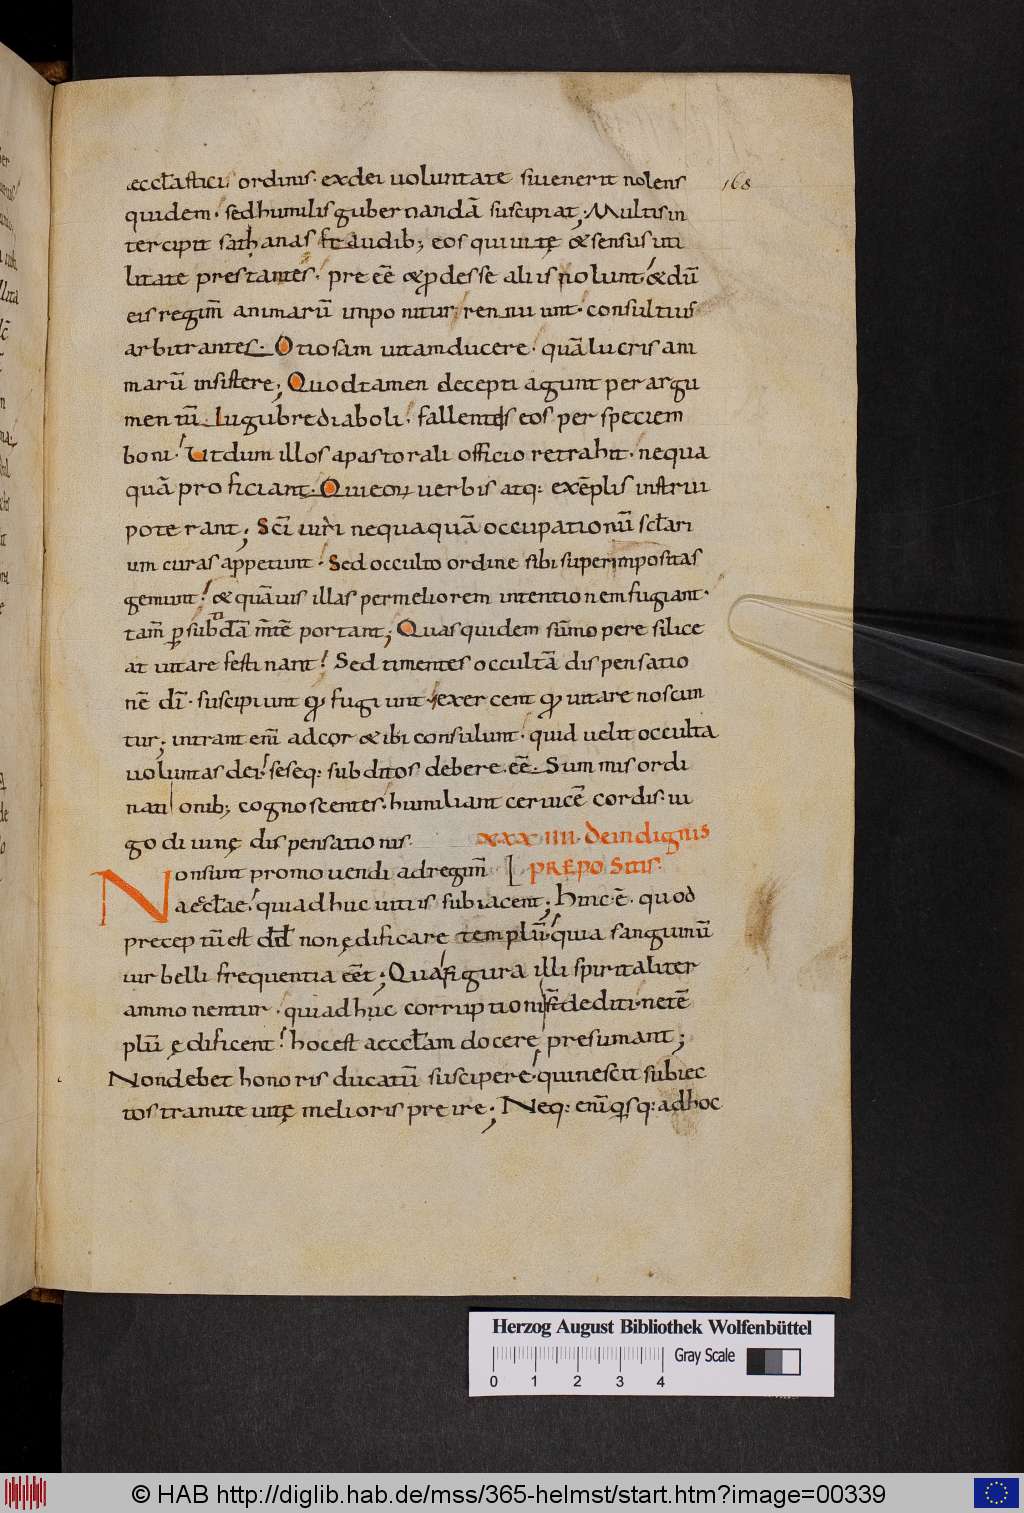 æccl̄astici ordinis. exdei uoluntate siuenerit nolens
168
quidem. sedhumilis gubernandā suscipiat; Multis in
tercipit sathanas fraudib; eos qui uitę & sensus uti
litate prestantes. pre eē & ꝓdesse aliis nolunt & dū
eis regim̄ animarū imponitur rennuunt. consultius
arbitrantes. Otiosam uitamducere. quā lucris ani
marū insistere; Quodtamen decepti agunt per argu
mentū lugubre diaboli. fallentis eos per speciem
boni. Ut dum illos apastorali officio retrahit. nequa
quā proficiant. Qui eoꝝ uerbis atq: exēplis instrui
poterant; Sc̄i uiri nequaquā occupationū scl̄ari
um curas appetunt. Sed occulto ordine sibi superimpositas
gemunt. & quāuis illas per meliorem intentionem fugiant.
tam̄ ꝑ subdītā m̄tē portant; Quas quidem sūmopere silice
at uitare festinant. Sed timentes occultā dispensatio
nē dī. suscipiunt qđ fugiunt. exercent qđ uitare noscun
tur; intrant enī adcor & ibi consulunt. quid uelit occulta
uoluntas dei. seseq: subditos debere eē. Summis ordi
nationib; cognoscentes. humiliant ceruicē cordis. iu
go diuinę dispensationis.
xxxiiii. de indignis
prepositis.
Nonsunt promouendi adregim̄
aeccl̄ae. quiadhuc uitiis subiacent; Hinc ē. quod
precep tū est dd̄ non ędificare templū. quia sanguinū
uir belli frequentia eēt; Qua figura illi spiritaliter
ammonentur. quiadhuc corruptioni s̄ dediti. ne tē
plū ędificent. hocest aeccl̄am docere presumant;
Nondebet honoris ducatū suscipere. quinescit subiec
tos tramite uitę melioris preire; Neq: enī qisq: adhoc
Herzog August Bibliothek Wolfenbüttel
Gray Scale
0 1 2 3 4
© HAB http://diglib.hab.de/mss/365-helmst/start.htm?image=00339